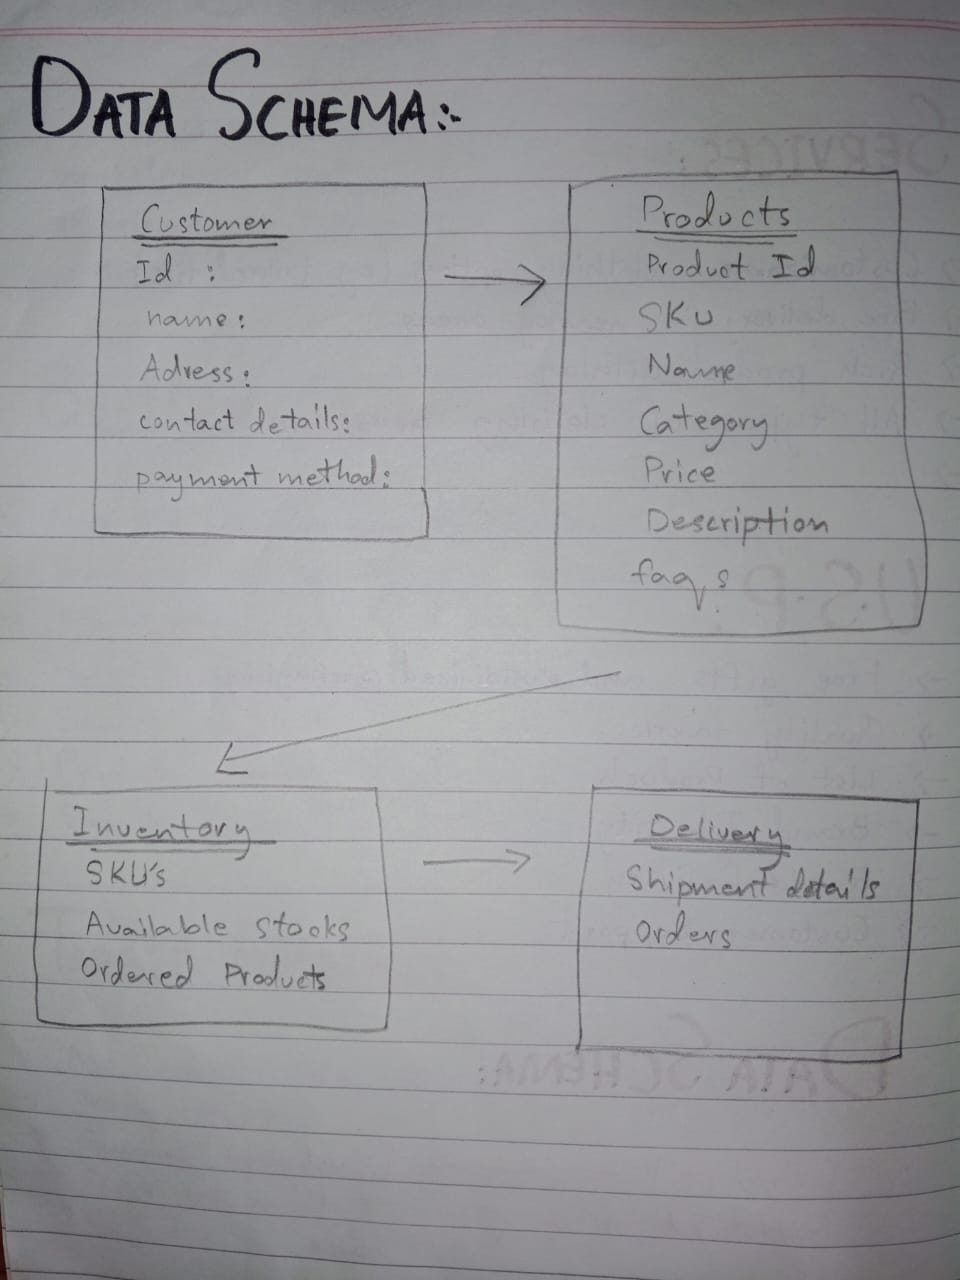 DATA SCHEMA:-
Customer
Id :
name:
Adress:
contact details:
payment method:
Products
Product Id
SKU
Name
Category
Price
Description
faq,s
Inventory
SKU's
Available Stocks
Ordered Products
Delivery
Shipment details
Orders